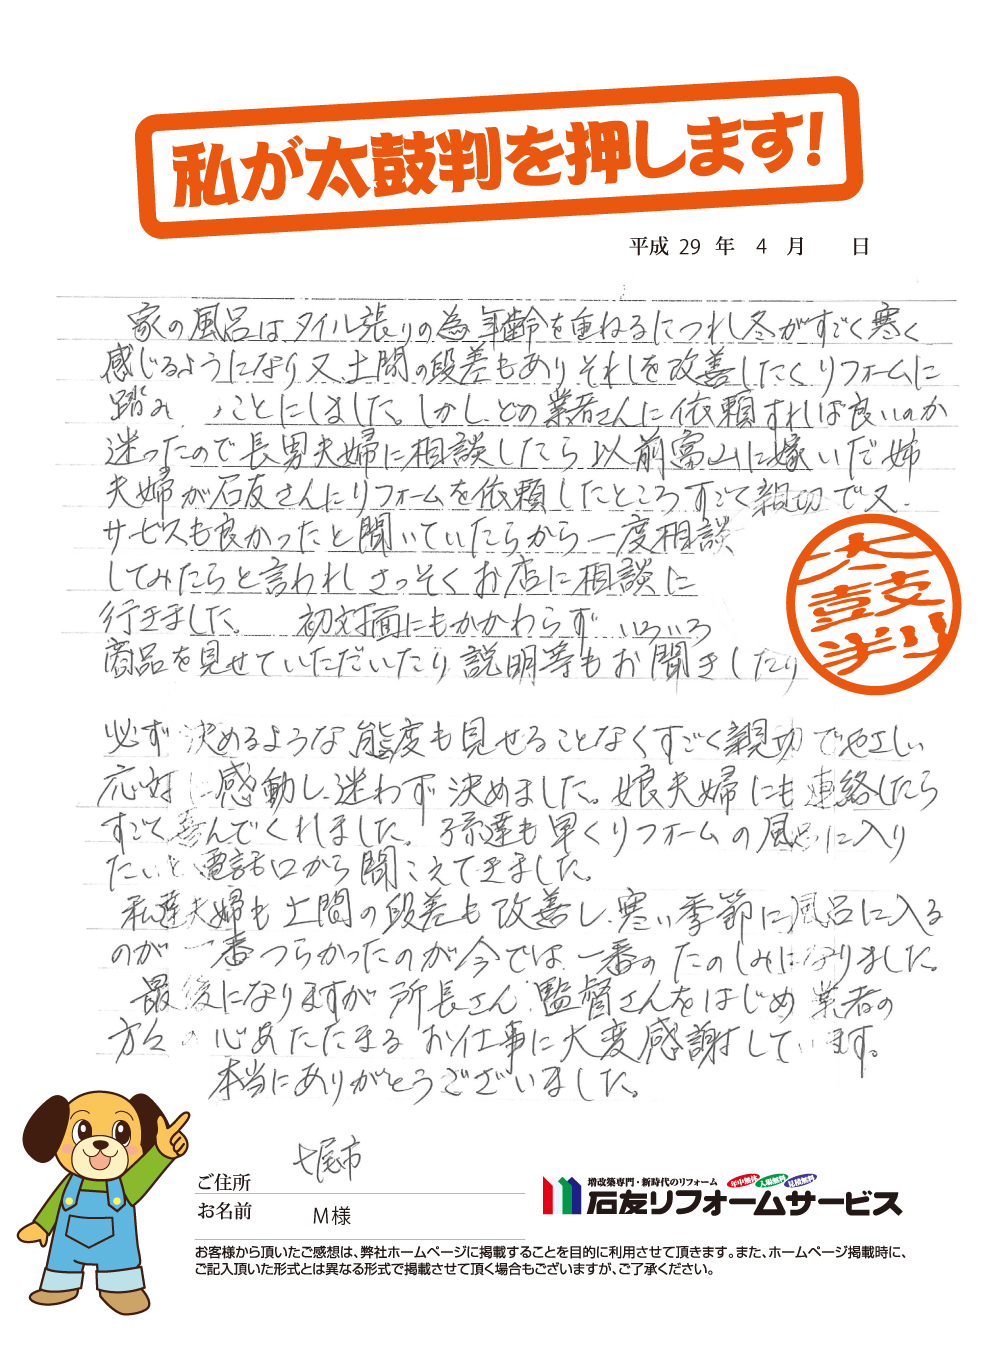 私が太鼓判を押します!
平成 29 年 4 月 日
家の風呂はタイル張りの為年齢を重ねるにつれ冬がすごく寒く
感じるようになり又、土間の段差もありそれを改善したくリフォームに
踏み ことにしました。しかし、どの業者さんに依頼すれば良いのか
迷ったので長男夫婦に相談したら以前富山に嫁いだ姉
夫婦が石友さんにリフォームを依頼したところすごく親切で又、
サービスも良かったと聞いていたらから一度相談
してみたらと言われ さっそくお店に相談に
行きました。 初対面にもかかわらず いろいろ
商品を見せていただいたり説明等もお聞きしたり
太鼓判
必ず決めるような態度も見せることなくすごく親切でやさしい
応対に感動し、迷わず決めました。娘夫婦にも連絡したら
すごく喜んでくれました。孫達も早くリフォームの風呂に入り
たいと電話口から聞こえてきました。
私達夫婦も土間の段差も改善し、寒い季節に風呂に入る
のが一番つらかったのが今では、一番のたのしみになりました。
最後になりますが所長さん、監督さんをはじめ業者の
方々の心あたたまるお仕事に大変感謝しています。
本当にありがとうございました。
ご住所 七尾市
お名前 M様
増改築専門・新時代のリフォーム 年中無休 入場無料 見積無料
石友リフォームサービス
お客様から頂いたご感想は、弊社ホームページに掲載することを目的に利用させて頂きます。また、ホームページ掲載時に、
ご記入頂いた形式とは異なる形式で掲載させて頂く場合もございますが、ご了承ください。